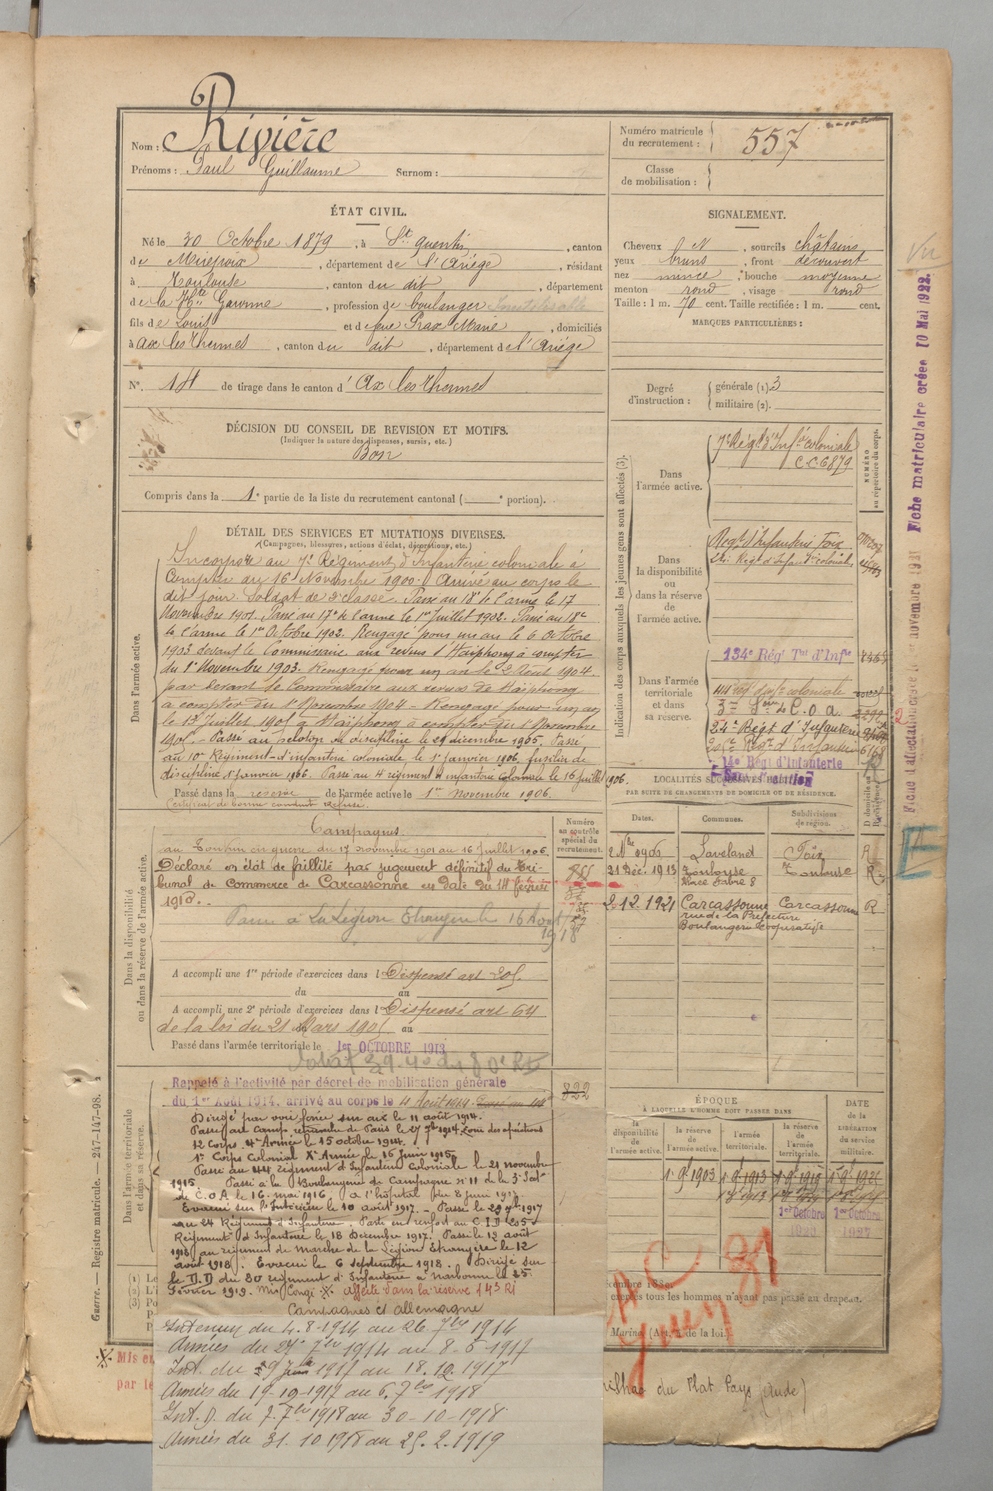 Nom : Rivière
Prénoms : Paul Guillaume Surnom :
Numéro matricule du recrutement : 557
Classe de mobilisation :
ÉTAT CIVIL.
Né le 30 Octobre 1879, à St Quentin, canton
de Mirepoix, département de l'Ariége, résidant
à Toulouse, canton du dit, département
de la Hte Garonne, profession de boulanger
fils de Louis et de feue Prax Marie, domiciliés
à Ax les Thermes, canton du dit, département de l'Ariége
N° 14 de tirage dans le canton d'Ax les Thermes
SIGNALEMENT.
Cheveux N, sourcils châtains
yeux bruns, front découvert
nez mince, bouche moyenne
menton rond, visage rond
Taille : 1 m. 70 cent. Taille rectifiée : 1 m. cent.
MARQUES PARTICULIÈRES :
Degré d'instruction : générale (1) 3
militaire (2).
DÉCISION DU CONSEIL DE REVISION ET MOTIFS.
(Indiquer la nature des dispenses, sursis, etc.)
Bon
Compris dans la 1e partie de la liste du recrutement cantonal ( e portion).
DÉTAIL DES SERVICES ET MUTATIONS DIVERSES.
(Campagnes, blessures, actions d'éclat, décorations, etc.)
Dans l'armée active.
Incorporé au 7e Régiment d'Infanterie coloniale à
Compter du 16 Novembre 1900. Arrivé au corps le
dit jour Soldat de 2e classe. Passé au 18e de l'arme le 17
Novembre 1901. Passé au 17e de l'arme le 1er Juillet 1902. Passé au 18e
de l'arme le 1er Octobre 1902. Rengagé pour un an le 6 Octobre
1903 devant le Commissaire aux revues d'Haïphong à compter
du 1er Novembre 1903. Rengagé pour un an le 2 Août 1904
par devant le Commissaire aux revues de Haïphong
à compter du 1er Novembre 1904 - Rengagé pour un an
le 12 Juillet 1905 à Haïphong à compter du 1er Novembre
1905. - Passé au peloton de discipline le 29 décembre 1905. Passé
au 10e Régiment d'infanterie coloniale le 1er janvier 1906, fusilier de
discipline dt janvier 1906. Passé au 4 régiment d'infanterie coloniale le 16 juillet 1906.
Passé dans la réserve de l'armée active le 1er novembre 1906.
Certificat de bonne conduite refusé.
Indication des corps auxquels les jeunes gens sont affectés (3).
NUMÉRO au répertoire du corps.
Dans l'armée active.
7e Régt d'Infie coloniale
6879
Dans la disponibilité ou dans la réserve de l'armée active.
Régt d'Infanterie Foix
Dans l'armée territoriale et dans sa réserve.
134e Régt Tal d'Infie
44e rég. d'Inf. coloniale
3e Son de C. O. A.
24e Régt d'Infanterie
205e Régt d'Infanterie
14e Régt d'Infanterie
LOCALITÉS SUCCESSIVES
PAR SUITE DE CHANGEMENTS DE DOMICILE OU DE RÉSIDENCE.
Dates. Communes. Subdivisions de région.
2 Nbre 1906 Lavelanet Foix
21 Déc. 1913 Toulouse Toulouse R
Place Fabre 8
2.12.1921 Carcassonne Carcassonne R
rue de la Préfecture
Boulangerie Coopérative
Dans la disponibilité ou dans la réserve de l'armée active.
Numéro au contrôle spécial du recrutement.
Campagnes
au Tonkin en guerre du 17 novembre 1901 au 16 juillet 1906.
Déclaré en état de faillite par jugement définitif du Tri-
bunal de Commerce de Carcassonne en date du 14 février
1910.
Passé à la Légion Etrangère le 16 Août
1918
A accompli une 1re période d'exercices dans l Dispensé art 205
du au
A accompli une 2e période d'exercices dans l Dispensé art 64
de la loi du 21 Mars 1905 au
Passé dans l'armée territoriale le 1er OCTOBRE 1913
Dans l'armée territoriale et dans sa réserve.
Rappelé à l'activité par décret de mobilisation générale
du 1er Août 1914, arrivé au corps le 4 Août 1914.
822
Dirigé par voie ferrée sur aix le 11 août 1914.
Passé au camp retranché de Paris le 27 7bre 1914. Zone des opérations
12 Corps, 4e Armée le 15 octobre 1914.
1er Corps Colonial Xe Armée le 16 juin 1915.
Passé au 44 régiment d'Infanterie Coloniale le 21 novembre
1915. Passé à la Boulangerie de Campagne n° 11 de la 3e Sect
de C. O. A. le 16 mai 1916. à l'hôpital du 8 juin 1917
Evacué sur l'Intérieur le 10 août 1917. - Passé le 29 7bre 1917
au 24 Régiment d'Infanterie. Parti en renfort au C I D 205e
Régiment d'Infanterie le 18 Décembre 1917. Passé le 12 août
1918 au régiment de Marche de la Légion Etrangère le 12
août 1918. Evacué le 6 septembre 1918. Dirigé sur
le D.D du 80 régiment d'Infanterie à Narbonne le 25
Février 1919. Mis Congé. Affecté dans la réserve 143 RI
Campagnes ct allemagne
Intérieur du 4.8-1914 au 26. 7bre 1914
Armées du 27 7bre 1914 au 8-6-1917
Int. du 9 Juin 1917 au 18.10.1917
Armées du 19-10-1917 au 6.7bre 1918
Int. D. du 7.7bre 1918 au 30-10-1918
Armées du 31.10.1918 au 25.2.1919
ÉPOQUE
À LAQUELLE L'HOMME DOIT PASSER DANS
la disponibilité de l'armée active. la réserve de l'armée active. l'armée territoriale. la réserve de l'armée territoriale.
DATE de la LIBÉRATION du service militaire.
1.9bre 1903
1er Octobre
1er Octobre
1927
n'ayant pas passé au drapeau.
Marine (Art. de la loi.
du Plat Pays (Aude)
Mis en
par le
Guerre. — Registre matricule. — 217-147-98.
Fiche matriculaire créée 10 Mai 1922.
Vu